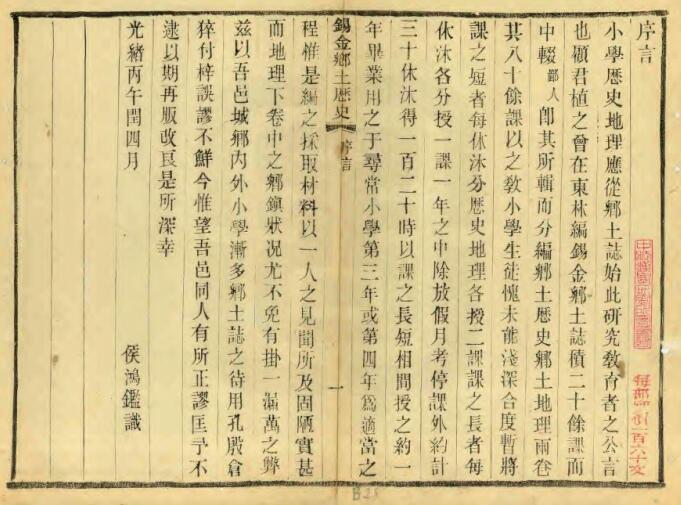 序言
小學歷史地理應從鄉土誌始此研究敎育者之公言
也顧君植之曾在東林編錫金鄉土誌積二十餘課而
中輟鄙人卽其所輯而分編鄉土歷史鄉土地理兩卷
其八十餘課以之敎小學生徒愧未能淺深合度暫將
課之短者每休沐分歷史地理各授二課課之長者每
休沐各分授一課一年之中除放假月考停課外約計
三十休沐得一百二十時以課之長短相間授之約一
年畢業用之于尋常小學第三年或第四年爲適當之
錫金鄉土歷史
序言
一
程惟是編之採取材料以一人之見聞所及固陋實甚
而地理下卷中之鄉鎭狀况尤不免有掛一漏萬之弊
茲以吾邑城鄉內外小學漸多鄉土誌之待用孔殷倉
猝付梓誤謬不鮮今惟望吾邑同人有所正謬匡予不
逮以期再版改良是所深幸
侯鴻鑑識
光緒丙午閏四月
每部 一百六十文
B25